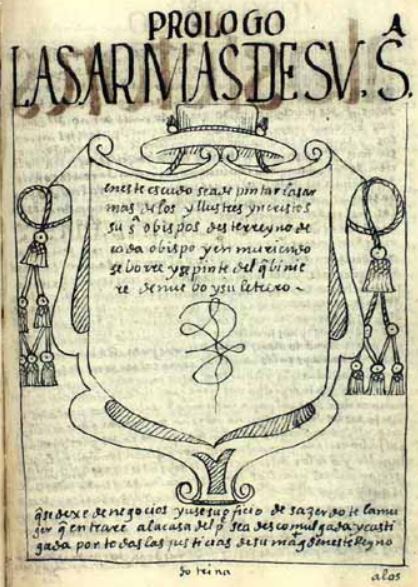 PROLOGO
LAS ARMAS DE SV. S.ᴬ
en este escudo sea de pintar las ar
mas de los yllustres yn cristos
su s.ᵃ obispos deste rreyno de
cada obispo y en muriendo
se borre y se pinte del q̃ binie
re de nuebo y su letrero~
q̃ se dexe de negocios y use su oficio de sazerdote la mu
ger q̃ entrare a la casa del p.ᵉ sea descomulgada y casti
gada por todas las justicias de su mag.ᵈ en este rreyno
dotrina
a los